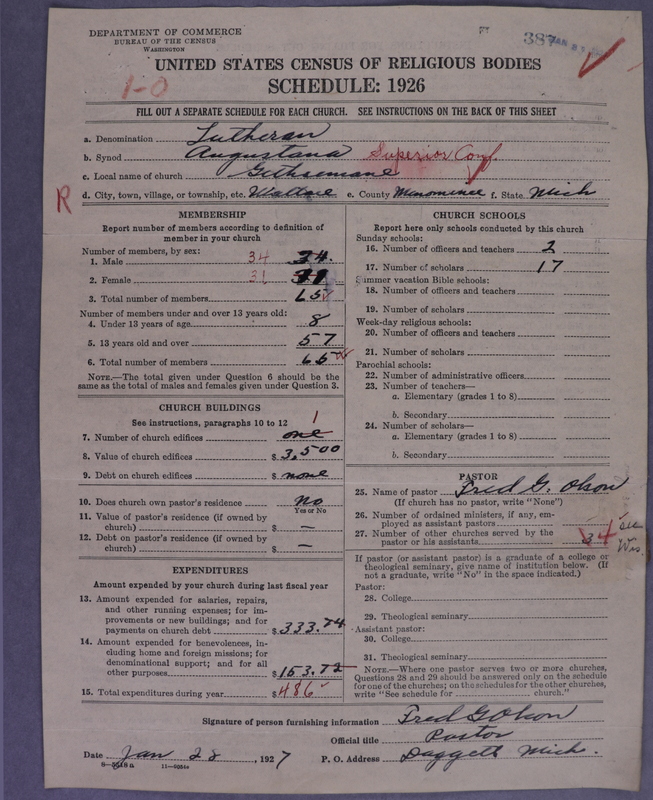 DEPARTMENT OF COMMERCE
BUREAU OF THE CENSUS
WASHINGTON
387
UNITED STATES CENSUS OF RELIGIOUS BODIES
SCHEDULE: 1926
1-0
FILL OUT A SEPARATE SCHEDULE FOR EACH CHURCH. SEE INSTRUCTIONS ON THE BACK OF THIS SHEET
a. Denomination Lutheran
b. Synod Augustana Superior Conf.
c. Local name of church Gethsemane
R
d. City, town, village, or township, etc. Wallace e. County Menominee f. State Mich
MEMBERSHIP
Report number of members according to definition of member in your church
Number of members, by sex:
1. Male 34 34.
2. Female 31
3. Total number of members 65
Number of members under and over 13 years old:
4. Under 13 years of age 8
5. 13 years old and over 57
6. Total number of members 65
NOTE.—The total given under Question 6 should be the
same as the total of males and females given under Question 3.
CHURCH BUILDINGS
See instructions, paragraphs 10 to 12
1
7. Number of church edifices one
8. Value of church edifices $ 3,500
9. Debt on church edifices $ none
10. Does church own pastor's residence No
Yes or No
11. Value of pastor's residence (if owned by
church) $ —
12. Debt on pastor's residence (if owned by
church) $ —
EXPENDITURES
Amount expended by your church during last fiscal year
13. Amount expended for salaries, repairs,
and other running expenses; for im-
provements or new buildings; and for
payments on church debt $ 333.74
14. Amount expended for benevolences, in-
cluding home and foreign missions; for
denominational support; and for all
other purposes $ 153.72
15. Total expenditures during year $ 486
CHURCH SCHOOLS
Report here only schools conducted by this church
Sunday schools:
16. Number of officers and teachers 2
17. Number of scholars 17
Summer vacation Bible schools:
18. Number of officers and teachers
19. Number of scholars
Week-day religious schools:
20. Number of officers and teachers
21. Number of scholars
Parochial schools:
22. Number of administrative officers
23. Number of teachers—
a. Elementary (grades 1 to 8)
b. Secondary
24. Number of scholars—
a. Elementary (grades 1 to 8)
b. Secondary
PASTOR
25. Name of pastor Fred G. Olson
(If church has no pastor, write "None")
26. Number of ordained ministers, if any, em-
ployed as assistant pastors
27. Number of other churches served by the
pastor or his assistants 4 see Wis.
If pastor (or assistant pastor) is a graduate of a college or
theological seminary, give name of institution below. (If
not a graduate, write "No" in the space indicated.)
Pastor:
28. College
29. Theological seminary
Assistant pastor:
30. College
31. Theological seminary
NOTE.—Where one pastor serves two or more churches,
Questions 28 and 29 should be answered only on the schedule
for one of the churches; on the schedules for the other churches,
write "See schedule for church."
Signature of person furnishing information Fred G Olson
Official title Pastor
Date Jan 28, 1927 P. O. Address Daggett Mich.